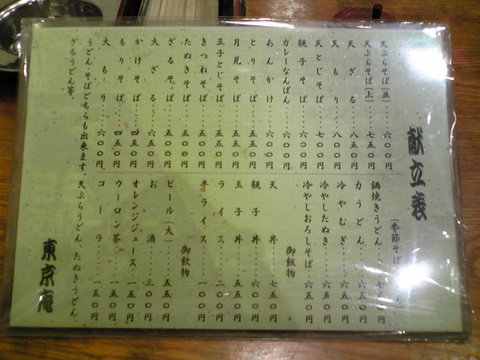 献立表
天ぷらそば(並)……六〇〇円
天ぷらそば(上)……七五〇円
天ざる……八五〇円
天もり……八〇〇円
天とじそば……七〇〇円
親子そば……六五〇円
カレーなんばん……六〇〇円
あんかけ……六〇〇円
とりそば……五五〇円
月見そば……五五〇円
玉子とじそば……五五〇円
きつねそば……五五〇円
たぬきそば……五五〇円
ざるそば……五五〇円
大ざる……六五〇円
かけそば……四五〇円
もりそば……四五〇円
大もり……六〇〇円
うどん、そばどちらも出来ます。天ぷらうどん、たぬきうどん、
ざるうどん等。
(季節そば
鍋焼きうどん……
力うどん……六五〇円
冷やむぎ……六五〇円
冷やしたぬき……六五〇円
冷やしおろしそば……六五〇円
御飯物
天丼……七五〇円
親子丼……六五〇円
玉子丼……六〇〇円
ライス……二〇〇円
半ライス……一〇〇円
御飲物
ビール(大)……五五〇円
お酒……三〇〇円
オレンジジュース……一五〇円
ウーロン茶……一五〇円
コーラ……一五〇円
東京庵